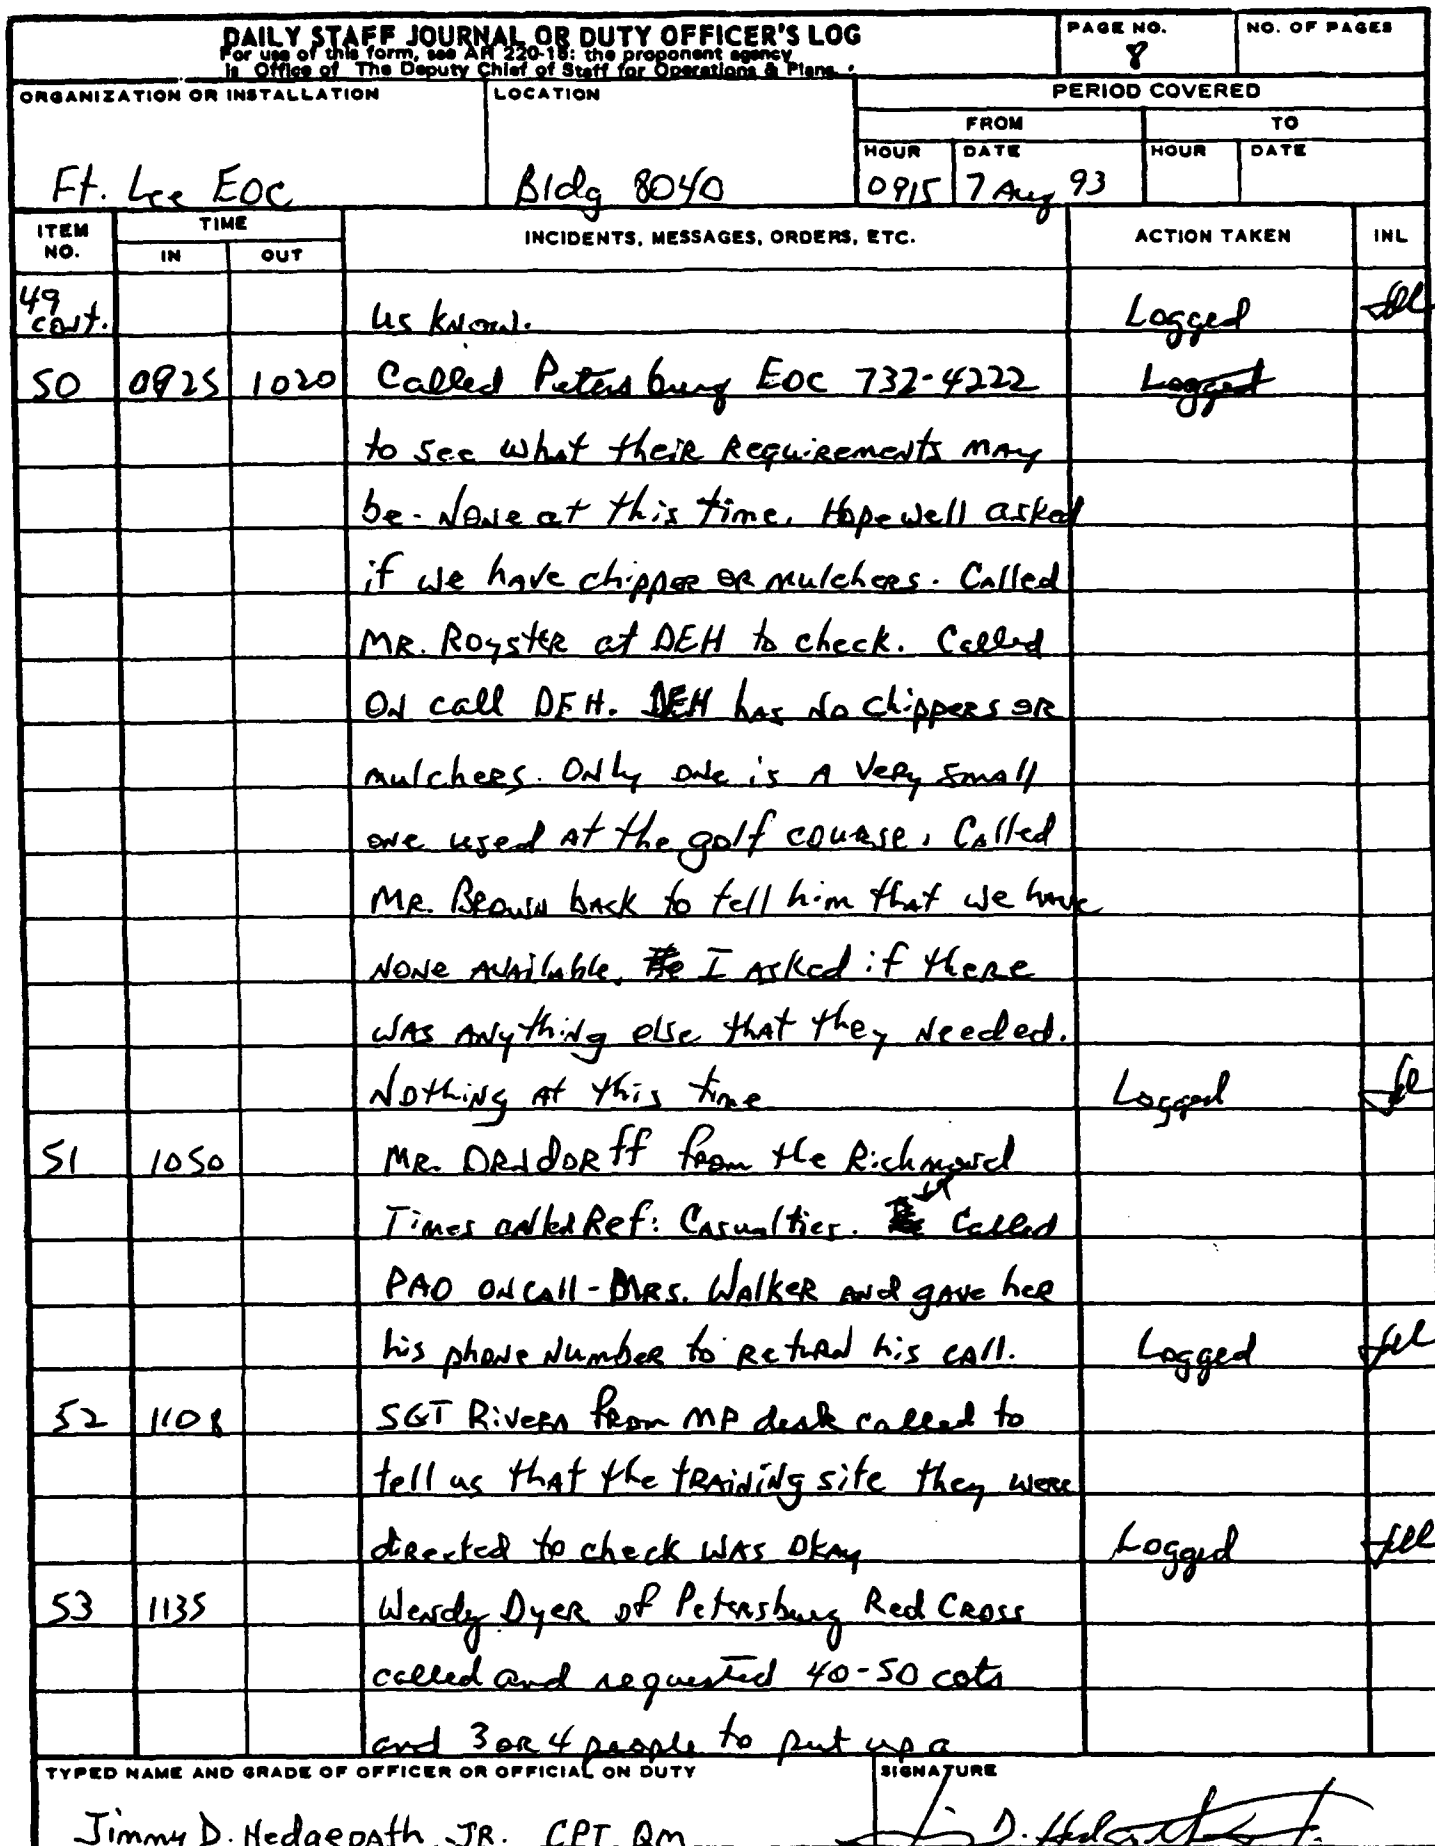 DAILY STAFF JOURNAL OR DUTY OFFICER'S LOG
For use of this form, see AR 220-15; the proponent agency
is Office of The Deputy Chief of Staff for Operations & Plans.
PAGE NO.
8
NO. OF PAGES
ORGANIZATION OR INSTALLATION
Ft. Lee EOC
LOCATION
Bldg 8040
PERIOD COVERED
FROM
TO
HOUR
DATE
HOUR
DATE
0915 7 Aug 93
ITEM NO.
TIME
IN
OUT
INCIDENTS, MESSAGES, ORDERS, ETC.
ACTION TAKEN
INL
49 cont. us know. Logged
50 0925 1020 Called Petersburg EOC 732-4222 Logged
to see what their Requirements may
be - None at this time. Hopewell asked
if we have chipper or mulchers. Called
MR. Royster at DEH to check. Called
ON call DEH. DEH has no chippers or
mulchers. Only one is a very small
one used at the golf course. Called
MR. Brown back to tell him that we have
none available. He I asked if there
was anything else that they needed.
Nothing at this time Logged
51 1050 MR. ORNdORff from the Richmond
Times called Ref: Casualties. Called
PAO on call - MRS. Walker and gave her
his phone number to return his call. Logged
52 1108 SGT Rivera from MP desk called to
tell us that the training site they were
directed to check was okay Logged
53 1135 Wendy Dyer of Petersburg Red Cross
called and requested 40-50 cots
and 3 or 4 people to put up a
TYPED NAME AND GRADE OF OFFICER OR OFFICIAL ON DUTY
Jimmy D. Hedgepath, JR. CPT, QM
SIGNATURE